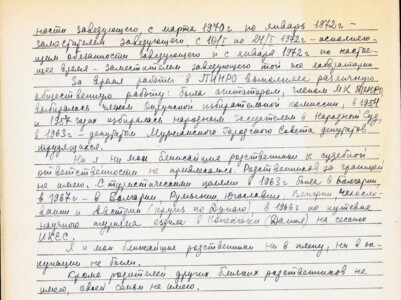 ности заведующего, с марта 1970г по январь 1972г -
заместителем заведующего, с 10/I по 24/VI 1972г - исполняю-
щим обязанности заведующего и с января 1972г по настоя-
щее время - заместителем заведующего той же лаборатории
За время работы в ПИНРО выполняла различную
общественную работу: была агитатором, членом МК ПИНРО
выбиралась членом окружной избирательной комиссии, в 1954
и 1957 годах избиралась народным заседателем в Народный Суд
в 1963г - депутатом Мурманского Городского Совета депутатов
трудящихся.
Ни я, ни мои ближайшие родственники к судебной
ответственности не привлекались. Родственников за границей
не имею. С туристическими целями в 1963г была в Болгарии
в 1967г - в Болгарии, Румынии, Югославии, Венгрии Чехосло-
вакии и Австрии (круиз по Дунаю) в 1963г по путевке
научного туризма ездила в Копенгаген (Дания) на сессию
ИКЕС.
Я и мои ближайшие родственники ни в плену, ни в ок-
купации не были.
Кроме родителей других близких родственников не
имею, своей семьи не имею.